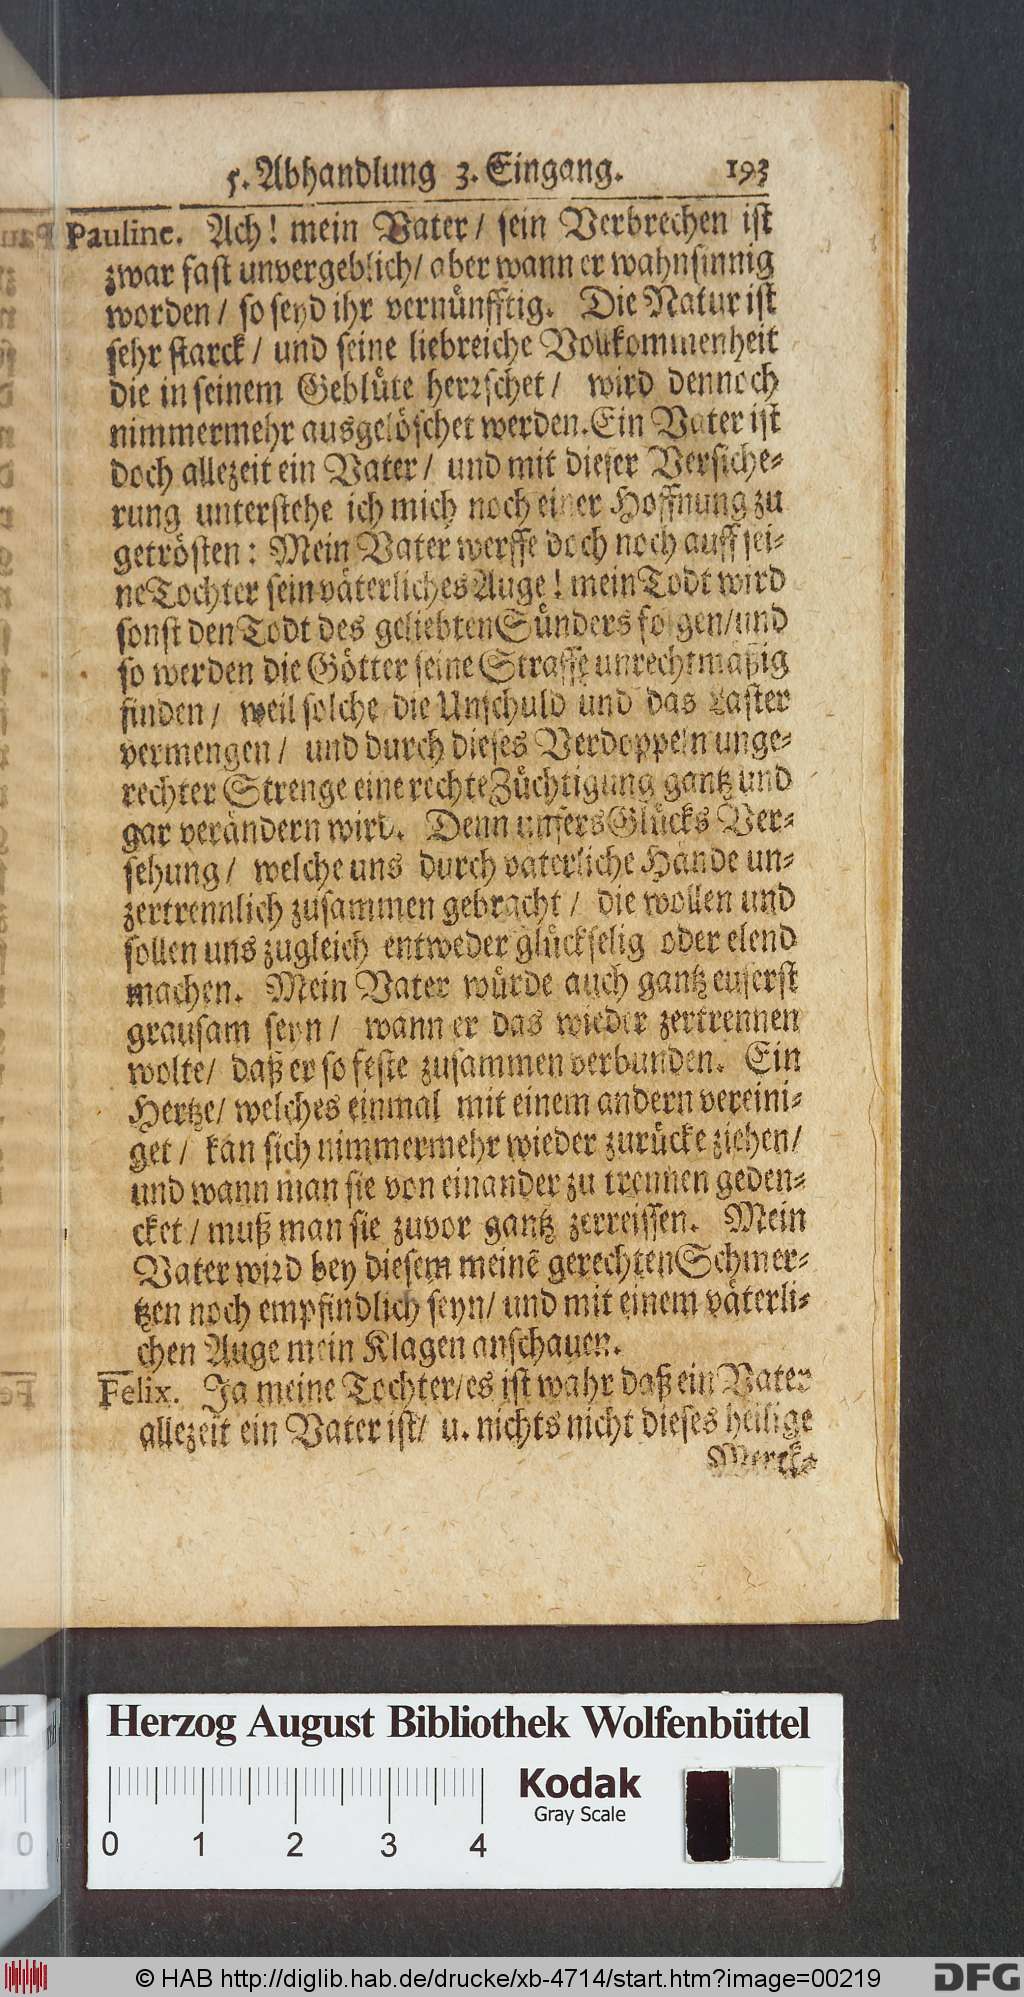 5. Abhandlung 3. Eingang. 193
Pauline. Ach! mein Vater/ sein Verbrechen ist
zwar fast unvergeblich/ aber wann er wahnsinnig
worden/ so seyd ihr vernünfftig. Die Natur ist
sehr starck/ und seine liebreiche Vollkommenheit
die in seinem Geblüte herrschet/ wird dennoch
nimmermehr ausgelöschet werden. Ein Vater ist
doch allezeit ein Vater/ und mit dieser Versiche-
rung unterstehe ich mich noch einer Hoffnung zu
getrösten: Mein Vater werffe doch noch auff sei-
ne Tochter sein väterliches Auge! mein Todt wird
sonst den Todt des geliebten Sünders folgen/und
so werden die Götter seine Straffe unrechtmäßig
finden/ weil solche die Unschuld und das Laster
vermengen/ und durch dieses Verdoppeln unge-
rechter Strenge eine rechte Züchtigung gantz und
gar verändern wird. Denn unsers Glücks Ver-
sehung/ welche uns durch vaterliche Hände un-
zertrennlich zusammen gebracht/ die wollen und
sollen uns zugleich entweder glückselig oder elend
machen. Mein Vater würde auch gantz euserst
grausam seyn/ wann er das wieder zertrennen
wolte/ daß er so feste zusammen verbunden. Ein
Hertze/ welches einmal mit einem andern vereini-
get/ kan sich nimmermehr wieder zurücke ziehen/
und wann man sie von einander zu trennen geden-
cket/ muß man sie zuvor gantz zerreissen. Mein
Vater wird bey diesem meinē gerechten Schmer-
tzen noch empfindlich seyn/ und mit einem väterli-
chen Auge mein Klagen anschauen.
Felix. Ja meine Tochter/es ist wahr daß ein Vater
allezeit ein Vater ist/ u. nichts nicht dieses heilige
Merck-
Herzog August Bibliothek Wolfenbüttel
Kodak
Gray Scale
0 1 2 3 4
© HAB http://diglib.hab.de/drucke/xb-4714/start.htm?image=00219
DFG